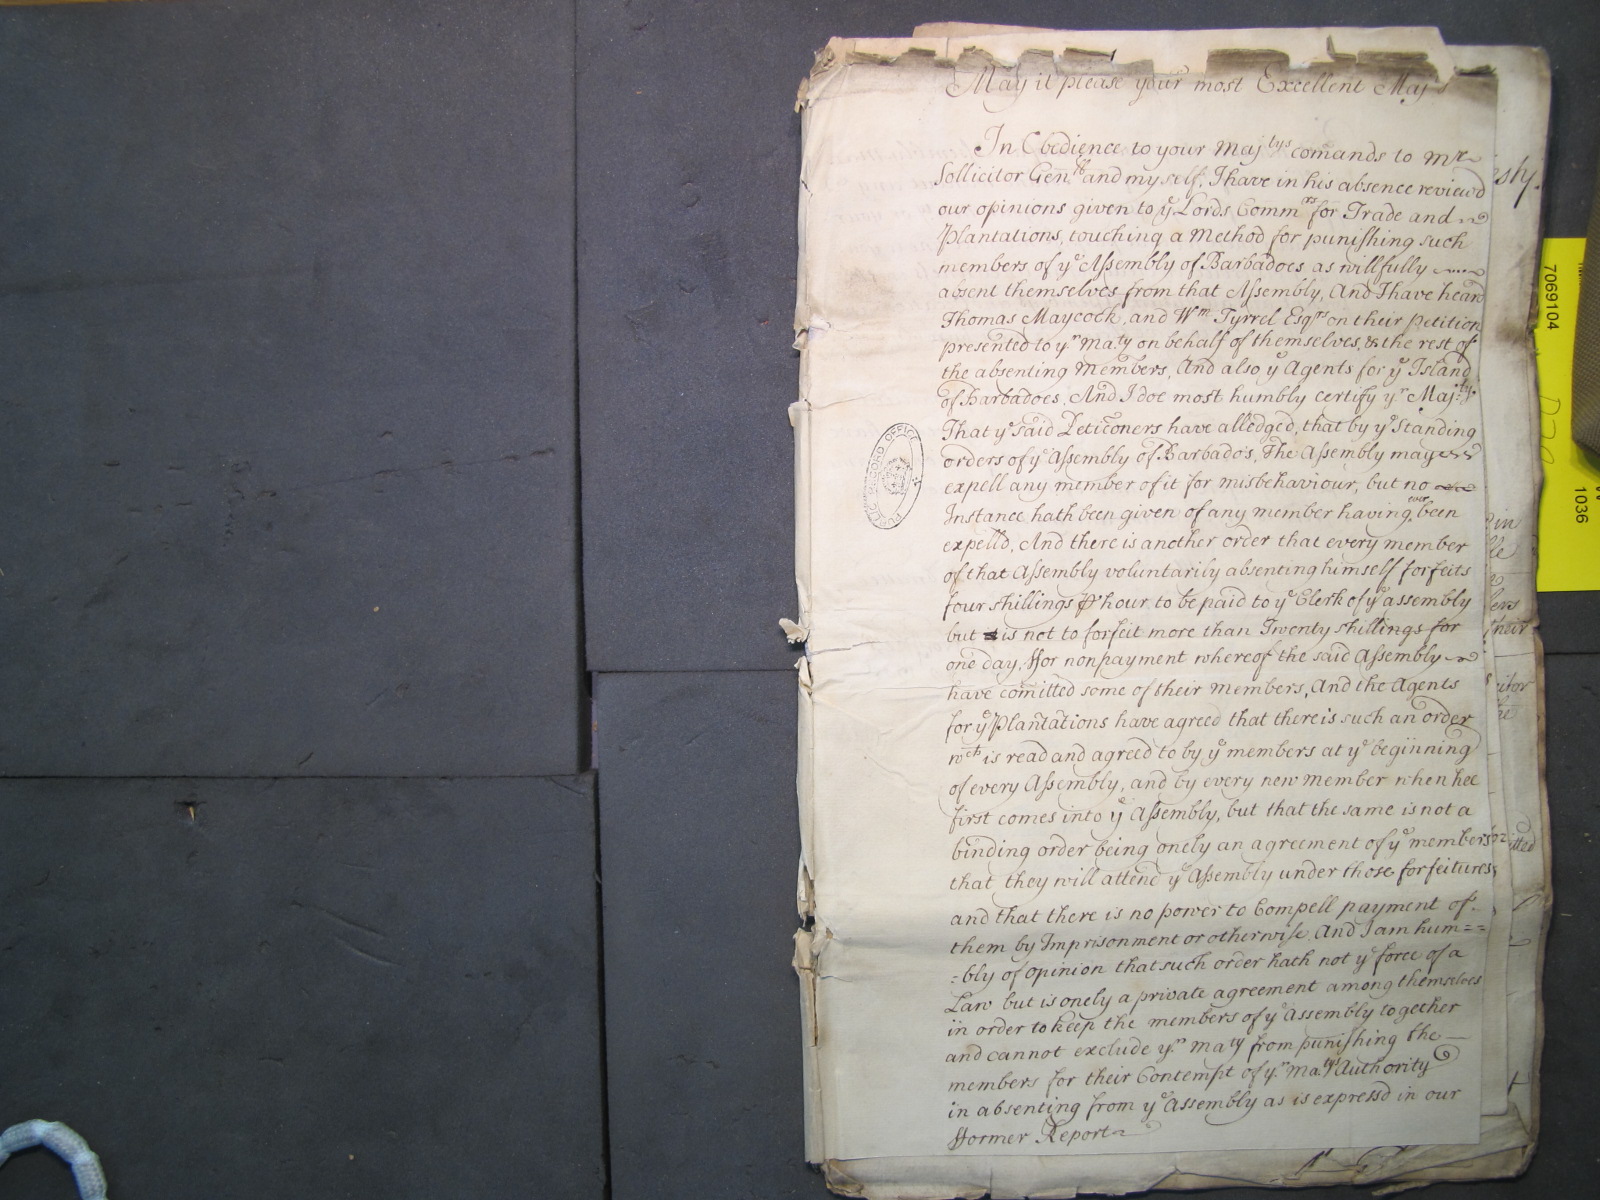 May it please your most Excellent Maj
In Obedience to your Maj.tys comands to Mr
Sollicitor Gen.ll and my self, I have in his absence reviewd
our opinions given to ye Lords Comm.rs for Trade and
Plantations, touching a Method for punishing such
members of ye Assembly of Barbadoes as willfully
absent themselves from that Assembly, And I have heard
Thomas Maycock, and Wm Tyrrel Esq.rs on their Petition
presented to yr Ma.ty on behalf of themselves, & the rest of
the absenting Members, And also ye Agents for ye Island
of Barbadoes, And I doe most humbly certify yr Maj.ty
That ye said Peticoners have alledged, that by ye Standing
orders of ye Assembly of Barbado's, The Assembly may
expell any member of it for misbehaviour, but no
Instance hath been given of any member having ever been
expelld, And there is another order that every member
of that Assembly voluntarily absenting himself forfeits
four shillings ꝑ hour to be paid to ye Clerk of ye assembly
but is not to forfeit more than Twenty shillings for
one day, ffor nonpayment whereof the said Assembly
have comitted some of their Members, And the Agents
for ye Plantations have agreed that there is such an order
wch is read and agreed to by ye members at ye beginning
of every Assembly, and by every new Member when hee
first comes into ye Assembly, but that the same is not a
binding order being onely an agreement of ye members
that they will attend ye Assembly under those forfeitures,
and that there is no power to Compell payment of
them by Imprisonment or otherwise. And I am hum=
=bly of opinion that such order hath not ye force of a
Law but is onely a private agreement among themselves
in order to keep the members of ye Assembly together
and cannot exclude yr Ma.ty from punishing the
members for their Contempt of yr Ma.tys Authority
in absenting from ye Assembly as is expressd in our
fformer Report
PUBLIC RECORD OFFICE
7069104
1036